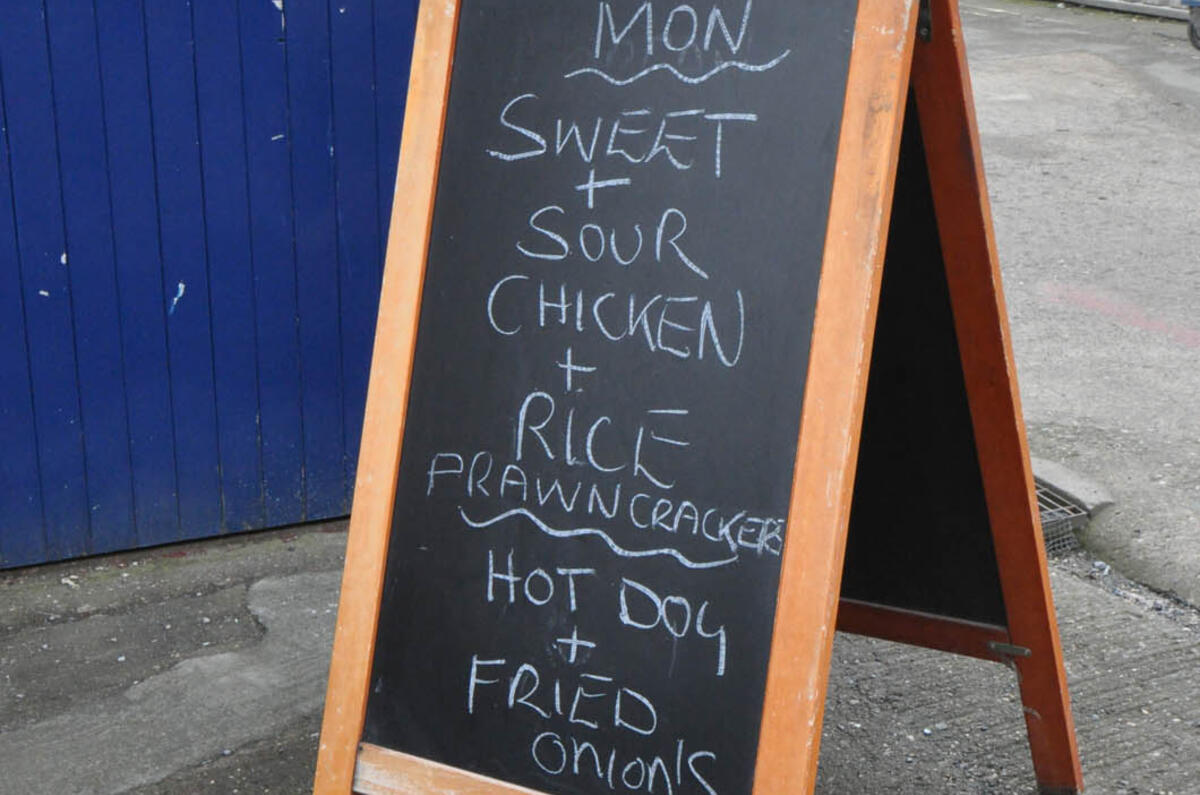 MON
SWEET
+
SOUR
CHICKEN
+
RICE
PRAWN CRACKERS
HOT DOG
+
FRIED
ONION'S